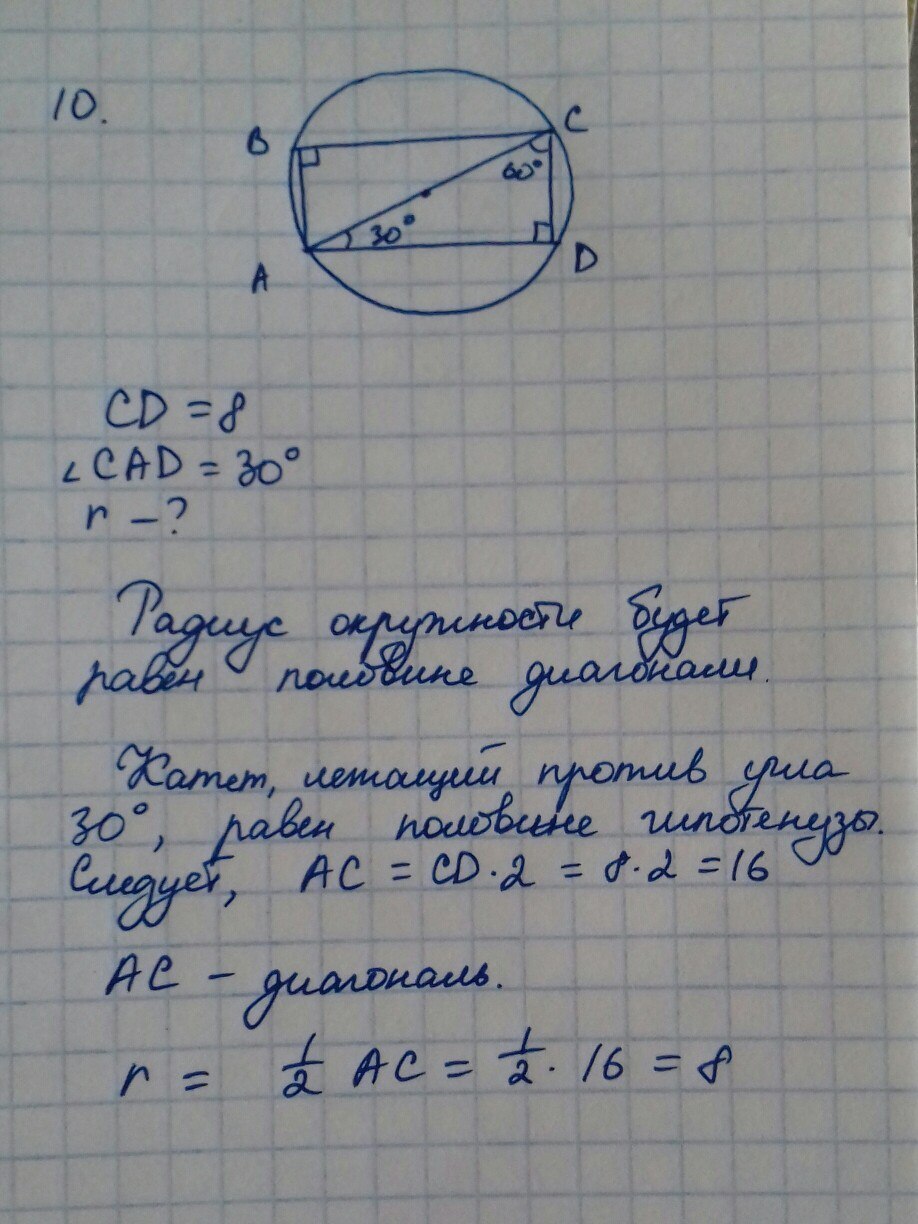 10.
B
C
60°
30°
A
D
CD = 8
∠CAD = 30°
r - ?
Радиус окружности будет
равен половине диагонали.
Катет, лежащий против угла
30°, равен половине гипотенузы.
Следует, AC = CD · 2 = 8 · 2 = 16
AC - диагональ.
r = 1/2 AC = 1/2 · 16 = 8